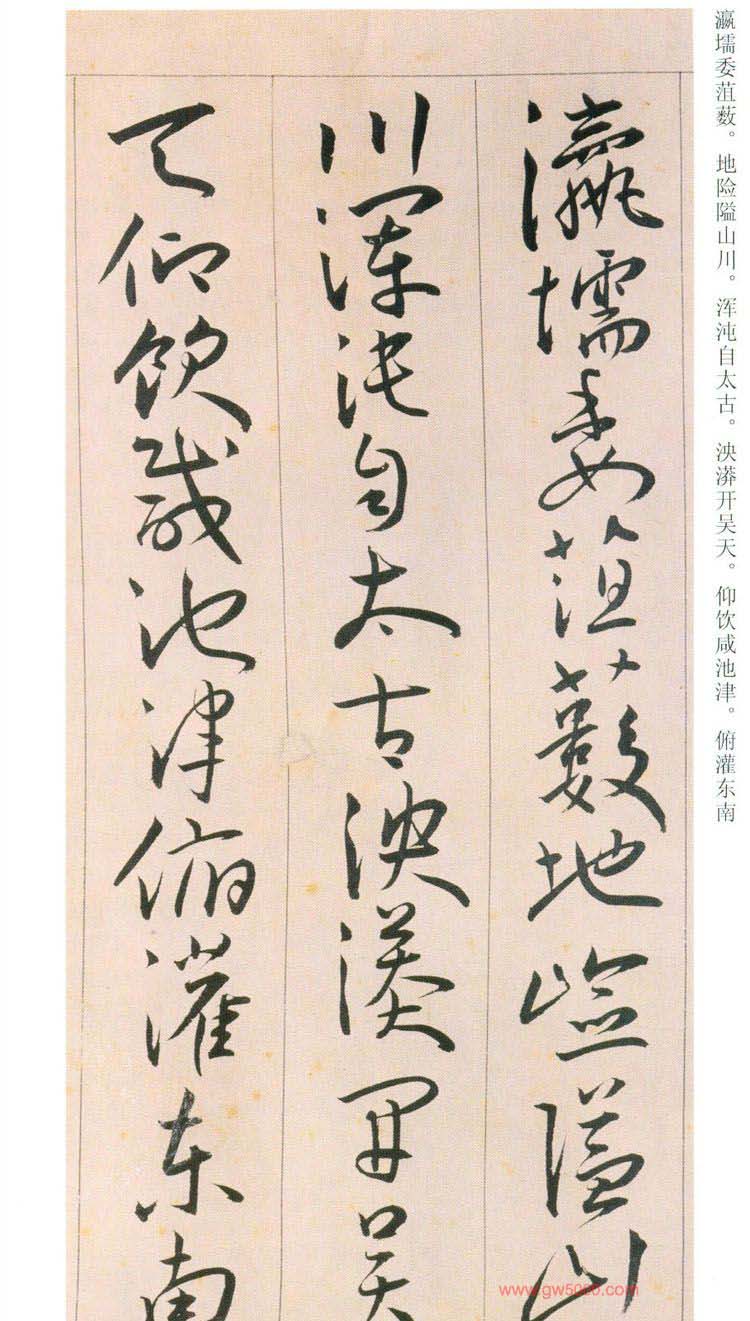 瀛壖委菹薮。地险隘山川。浑沌自太古。泱漭开吴天。仰饮咸池津。俯灌东南
瀛壖委菹藪地嶮隘山
川渾沌自太古泱漭開吴
天仰飲咸池津俯灌東南
www.gw5000.com